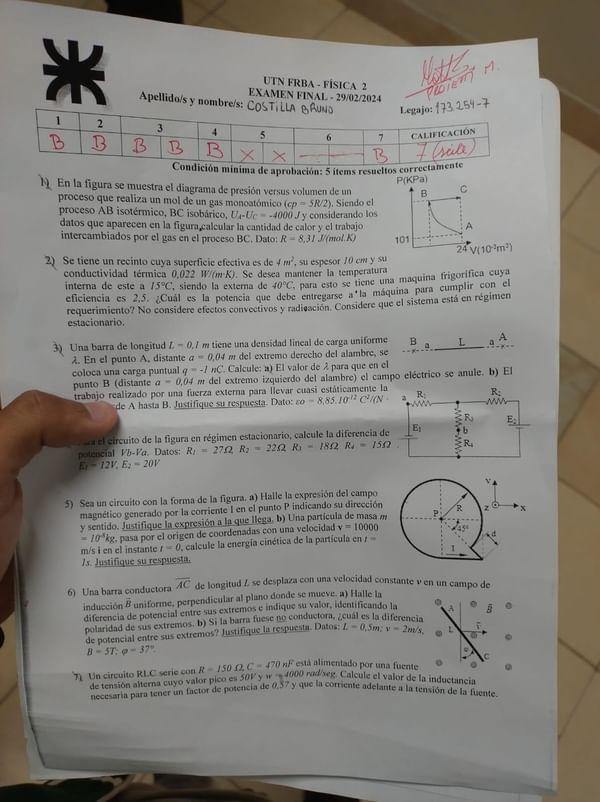 UTN FRBA - FÍSICA 2
EXAMEN FINAL - 29/02/2024
Apellido/s y nombre/s: COSTILLA BRUNO
Legajo: 173254-7
1 2 3 4 5 6 7 CALIFICACIÓN
B B B B B X X B 7 (siete)
Condición mínima de aprobación: 5 ítems resueltos correctamente
1) En la figura se muestra el diagrama de presión versus volumen de un
proceso que realiza un mol de un gas monoatómico (cp = 5R/2). Siendo el
proceso AB isotérmico, BC isobárico, UA-UC = -4000 J y considerando los
datos que aparecen en la figura, calcular la cantidad de calor y el trabajo
intercambiados por el gas en el proceso BC. Dato: R = 8,31 J/(mol.K)
P(KPa)
B
C
A
101
24 V(10⁻³m³)
2) Se tiene un recinto cuya superficie efectiva es de 4 m², su espesor 10 cm y su
conductividad térmica 0,022 W/(m·K). Se desea mantener la temperatura
interna de este a 15ºC, siendo la externa de 40ºC, para esto se tiene una maquina frigorífica cuya
eficiencia es 2,5. ¿Cuál es la potencia que debe entregarse a la máquina para cumplir con el
requerimiento? No considere efectos convectivos y radiación. Considere que el sistema está en régimen
estacionario.
3) Una barra de longitud L = 0,1 m tiene una densidad lineal de carga uniforme
λ. En el punto A, distante a = 0,04 m del extremo derecho del alambre, se
coloca una carga puntual q = -1 nC. Calcule: a) El valor de λ para que en el
punto B (distante a = 0,04 m del extremo izquierdo del alambre) el campo eléctrico se anule. b) El
trabajo realizado por una fuerza externa para llevar cuasi estáticamente la
de A hasta B. Justifique su respuesta. Dato: εo = 8,85.10⁻¹² C²/(N
B a L a A
el circuito de la figura en régimen estacionario, calcule la diferencia de
potencial Vb-Va. Datos: R1 = 27Ω, R2 = 22Ω, R3 = 18Ω, R4 = 15Ω
E1 = 12V, E2 = 20V
a R1 R2
R3
E1 b E2
R4
5) Sea un circuito con la forma de la figura. a) Halle la expresión del campo
magnético generado por la corriente I en el punto P indicando su dirección
y sentido. Justifique la expresión a la que llega. b) Una partícula de masa m
= 10⁻⁸kg, pasa por el origen de coordenadas con una velocidad v = 10000
m/s i en el instante t = 0, calcule la energía cinética de la partícula en t =
1s. Justifique su respuesta.
P R
45º
I
d
Y
z x
6) Una barra conductora AC de longitud L se desplaza con una velocidad constante v en un campo de
inducción B uniforme, perpendicular al plano donde se mueve. a) Halle la
diferencia de potencial entre sus extremos e indique su valor, identificando la
polaridad de sus extremos. b) Si la barra fuese no conductora, ¿cuál es la diferencia
de potencial entre sus extremos? Justifique la respuesta. Datos: L = 0,5m; v = 2m/s,
B = 5T; φ = 37º.
A B
L v
φ
C
7) Un circuito RLC serie con R = 150 Ω, C = 470 nF está alimentado por una fuente
de tensión alterna cuyo valor pico es 50V y w = 4000 rad/seg. Calcule el valor de la inductancia
necesaria para tener un factor de potencia de 0,57 y que la corriente adelante a la tensión de la fuente.